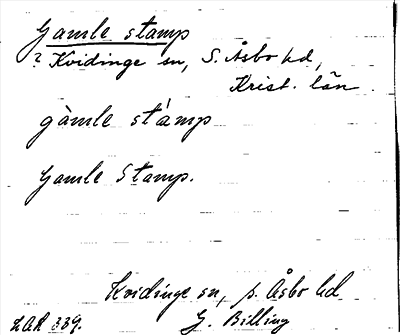 Gamle stamp
? Kvidinge sn, S. Åsbo hd,
Krist. län.
gàmle stámp
Gamle Stamp.
Kvidinge sn, s. Åsbo hd
LAR 339. G. Billing